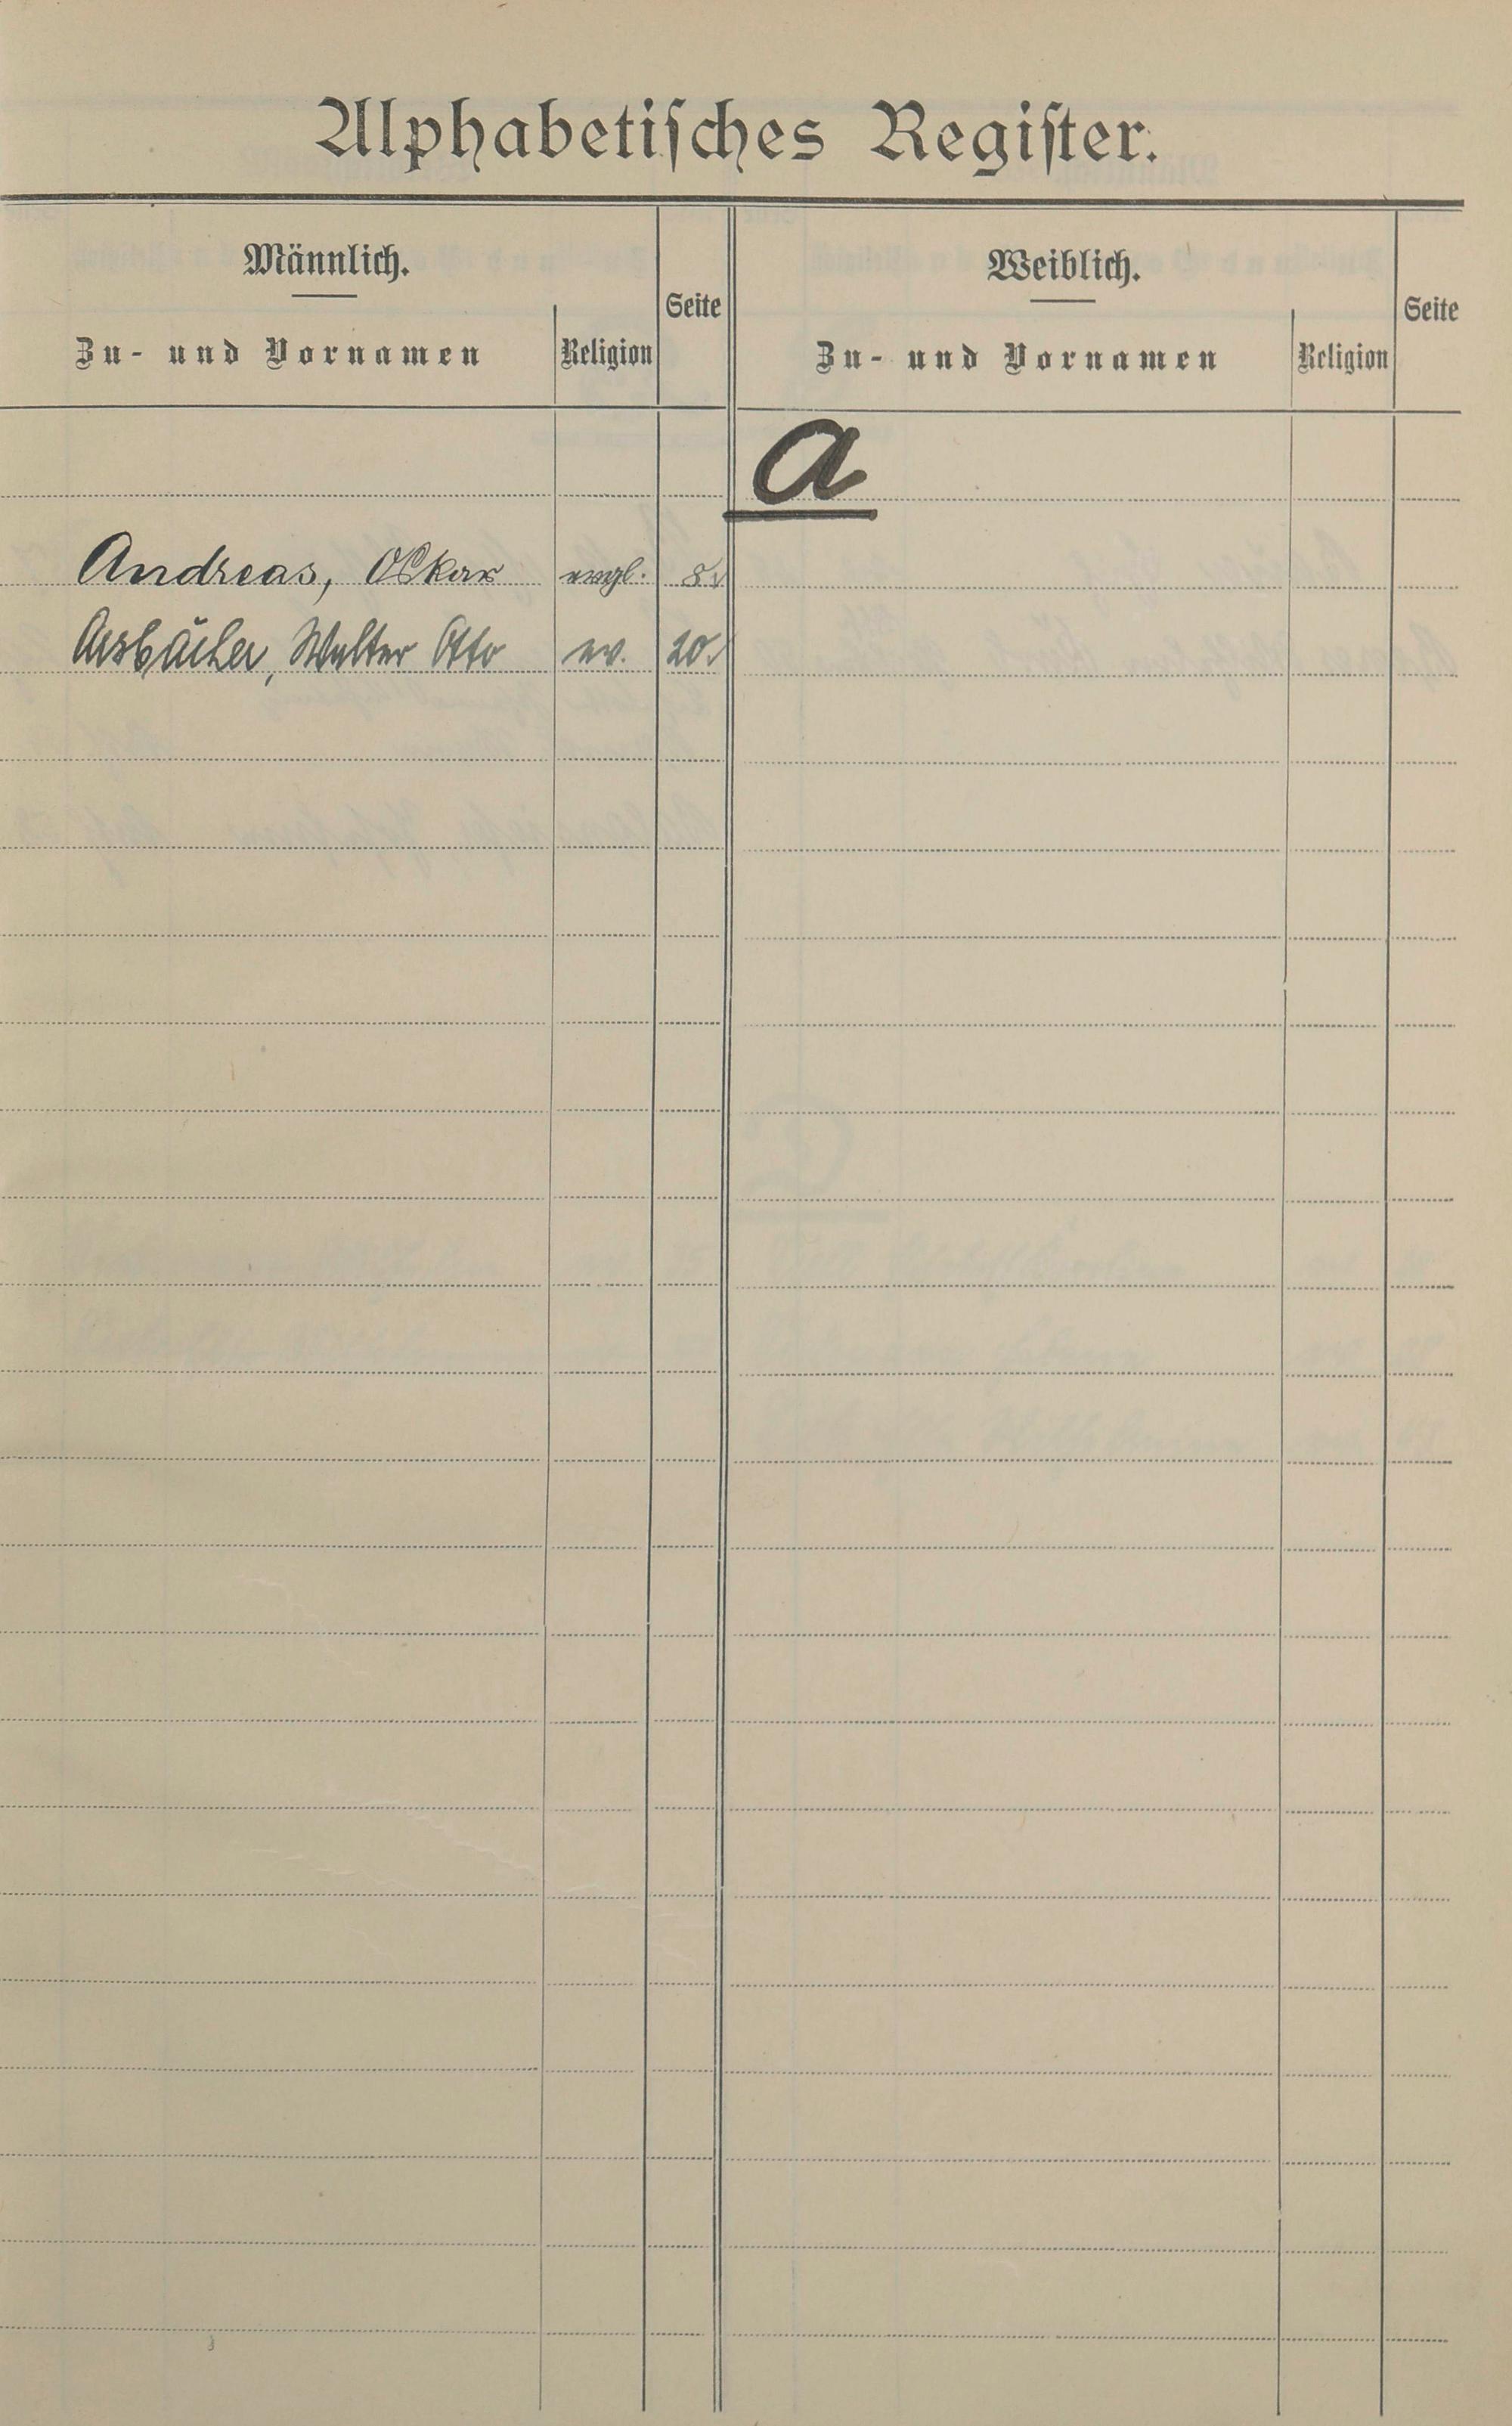 Alphabetisches Register.
Männlich.
Weiblich.
Zu- und Vornamen Religion Seite
Zu- und Vornamen Religion Seite
A
Andreas, Oskar evgl. 8.
Walter Otto ev. 20.